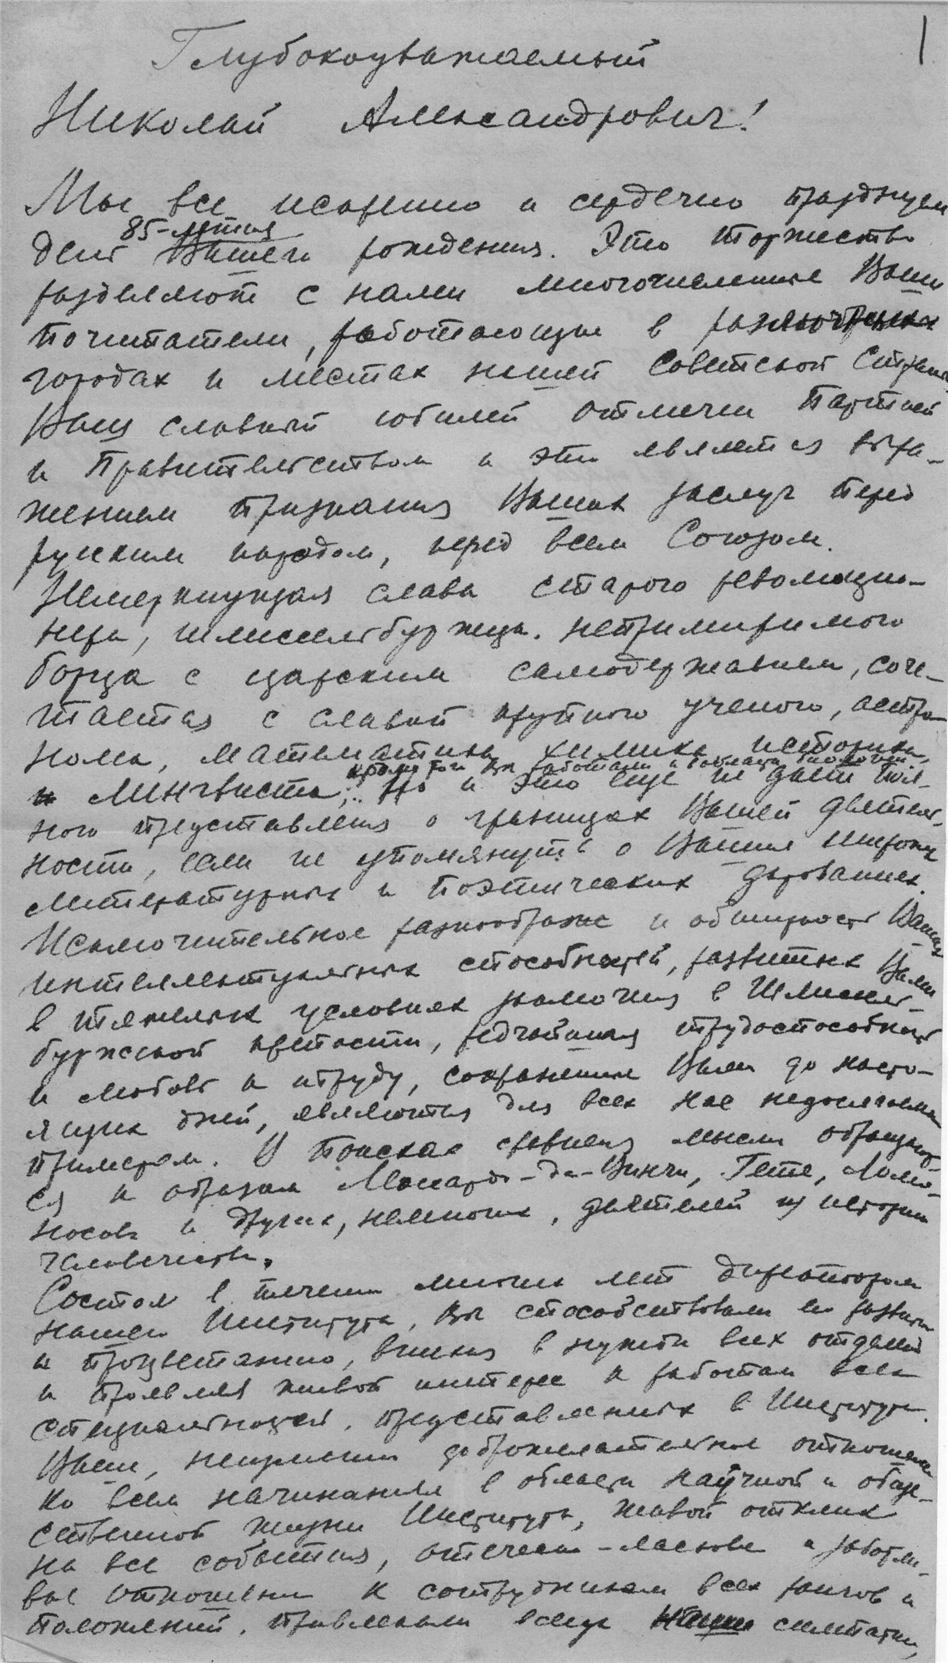 1
Глубокоуважаемый
Николай Александрович!
Мы все искренно и сердечно празднуем
85-летия
день Вашего рождения. Это торжество
разделяют с нами многочисленные Ваши
почитатели, работающие в
городах и местах нашей Советской Страны.
Ваш славный юбилей отмечен Партией
и Правительством и это является выра-
жением признания Ваших заслуг перед
русским народом, перед всем Союзом.
Немеркнущая слава старого революцио-
нера, шлиссельбуржца, непримиримого
борца с царским самодержавием, соче-
тается с славой крупного ученого, астро-
нома, математика, химика, историка
кроме того Вы работали в области биологии
и лингвиста; но и это еще не дает пол-
ного представления о границах Вашей деятель-
ности, если не упомянуть о Ваших широких
литературных и поэтических дарованиях.
Исключительное разнообразие и обширность Ваших
интеллектуальных способностей, развитых Вами
в тяжелых условиях заключения в Шлиссель-
буржской крепости, редчайшая трудоспособность
и любовь к труду, сохраненные Вами до насто-
ящих дней, являются для всех нас недосягаемым
примером. В поисках сравнения мысли обращают-
ся к образам Леонардо-да-Винчи, Гете, Ломо-
носова и других, немногих, деятелей из истории
человечества.
Состоя в течении многих лет директором
нашего Института, Вы способствовали его развитию
и процветанию, вникая в нужды всех отделов
и проявляя живой интерес к работам всех
специальностей, представленных в Институте.
Ваше, неизменно доброжелательное отношение
ко всем начинаниям в области научной и обще-
ственной жизни Института, живой отклик
на все события, отечески-ласковое и заботли-
вое отношение к сотрудникам всех рангов и
положений, привлекали всегда наши симпатии,